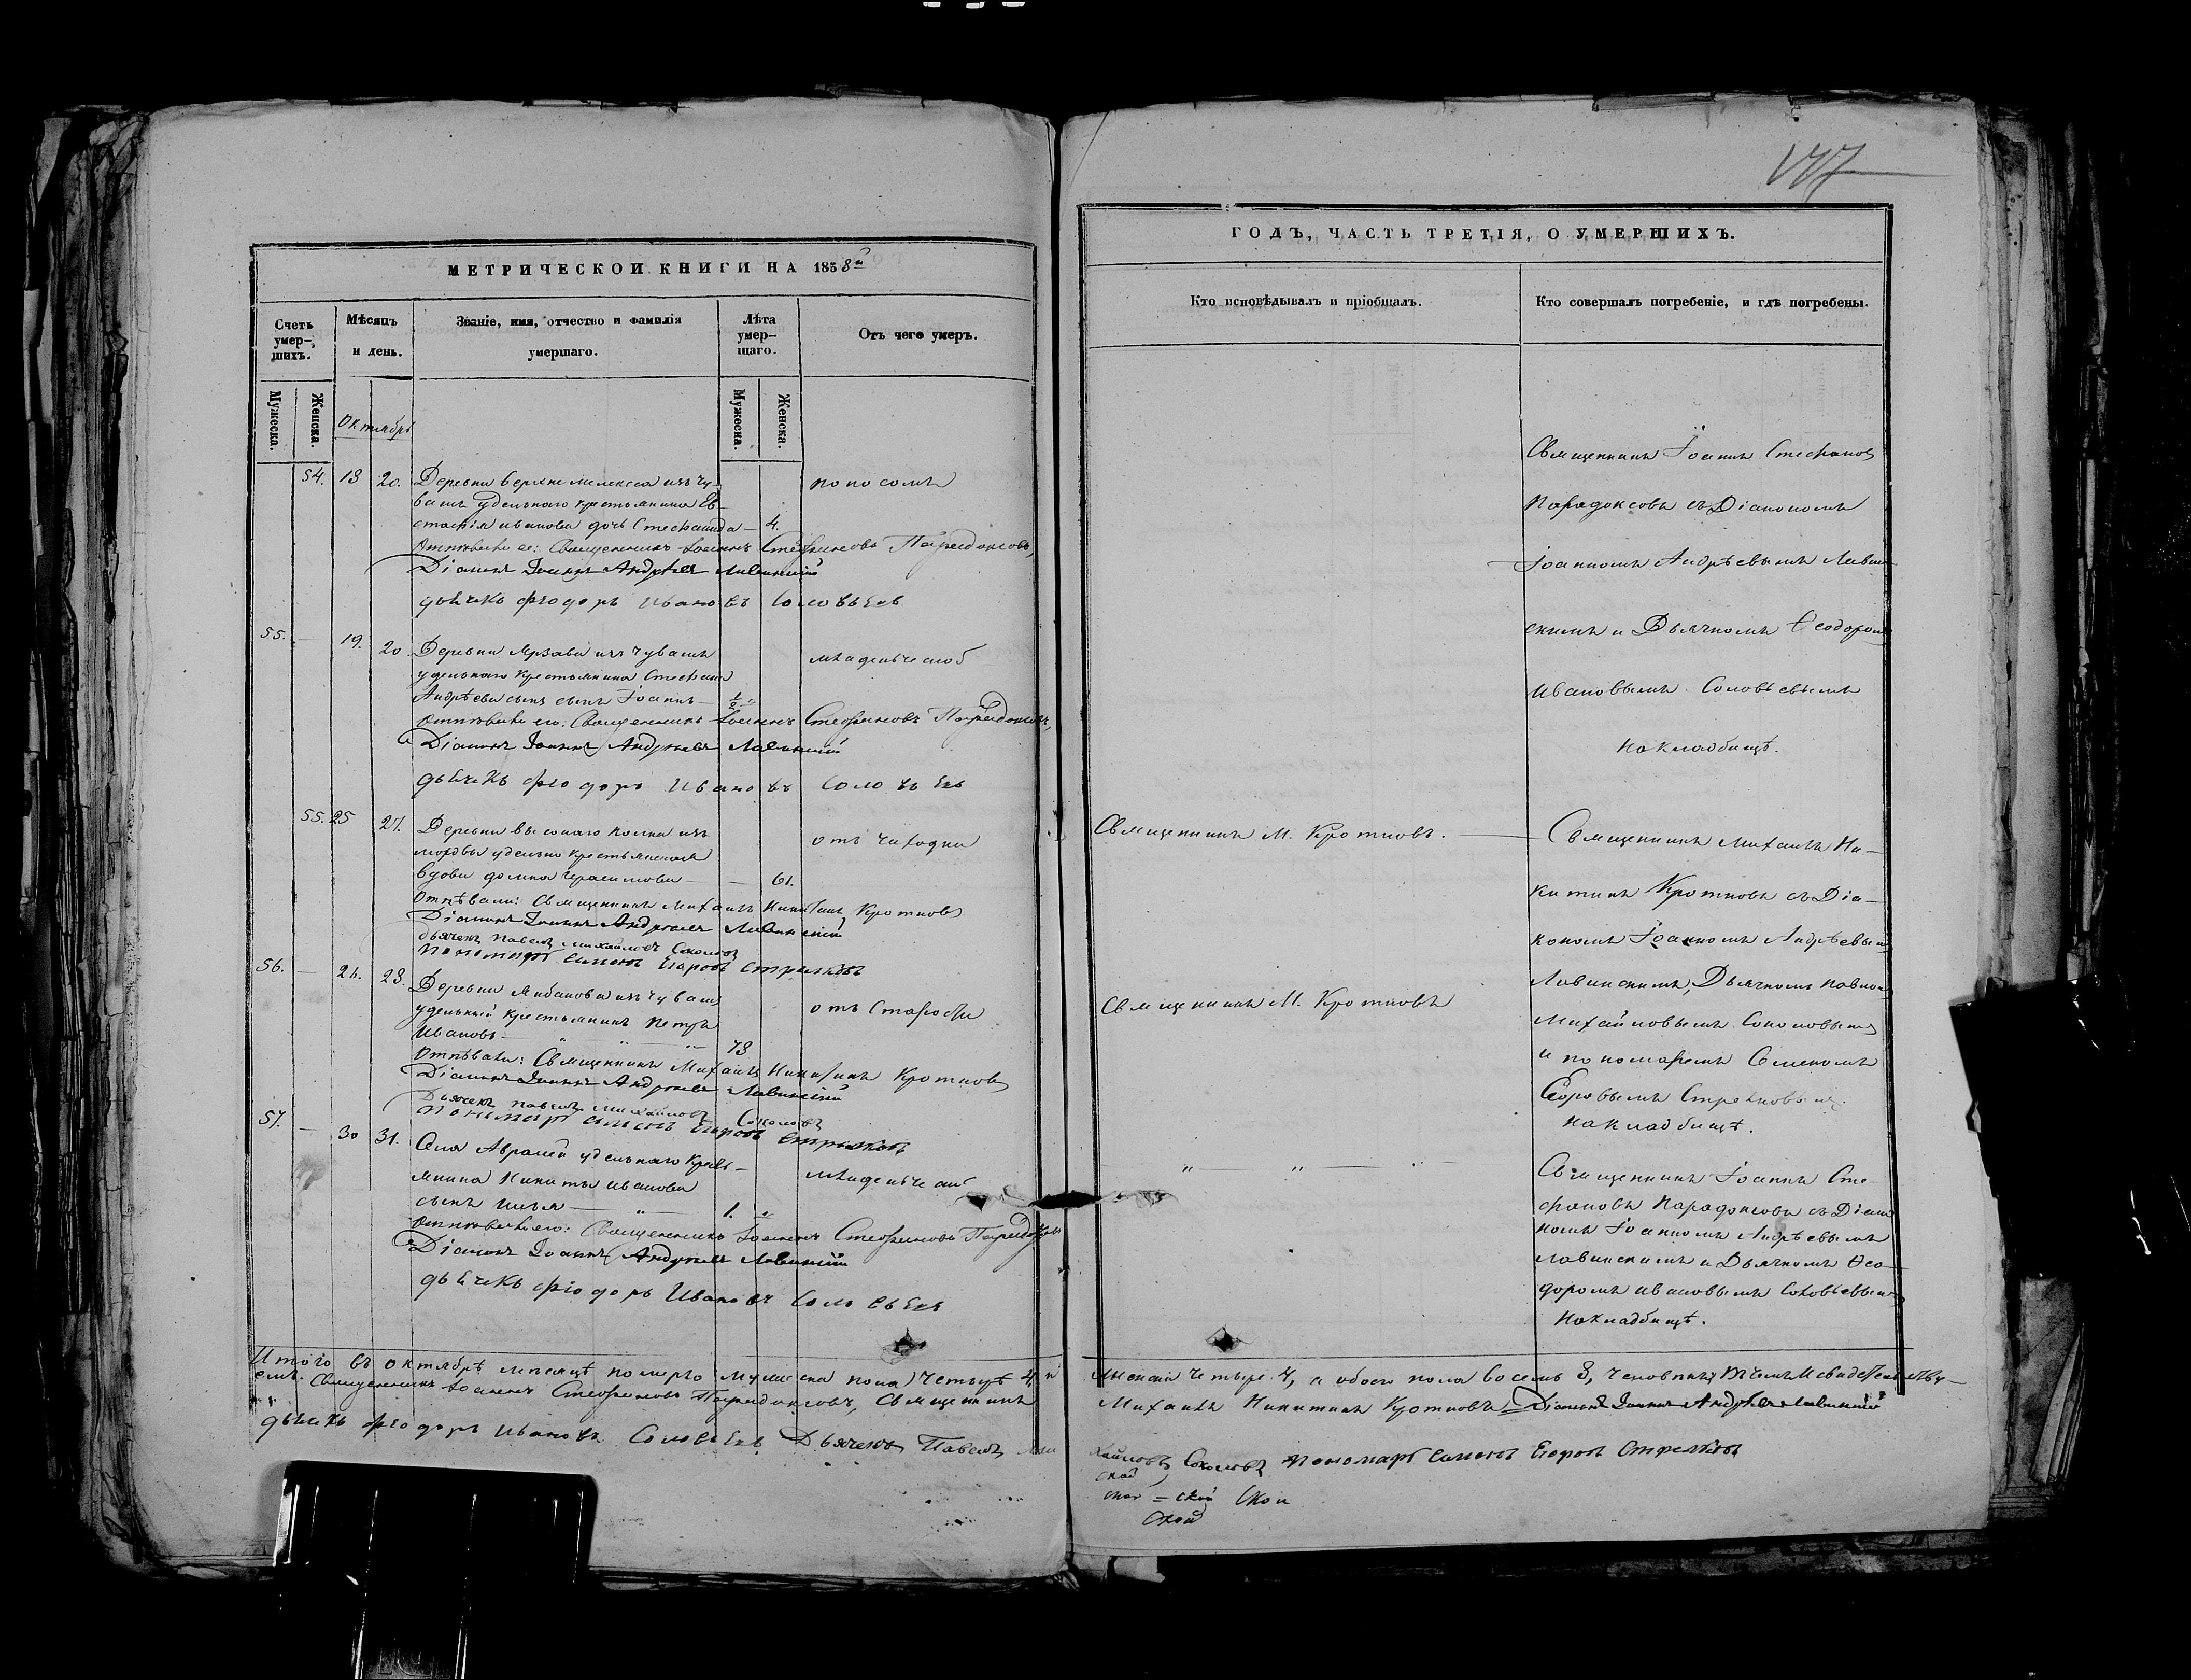 МЕТРИЧЕСКОЙ КНИГИ НА 1858й
Счетъ умер-шихъ.
Мѣсяцъ и день.
Званіе, имя, отчество и фамилія умершаго.
Лѣта умер-шаго.
Отъ чего умеръ.
Мужеска.
Женска.
Октябрь
Мужеска.
Женска.
54. 18 20. Деревни Верхне мелекеса изъ чу-
вашъ удѣльнаго крестьянина Ев-
стафія иванова дочь Стефанида — 4.
поносомъ
Отпѣвали ее: Священникъ Іоаннъ Стефановъ Парадоксовъ,
Діаконъ Іоаннъ Андреевъ Лавинскій
дьячекъ Фіодоръ Ивановъ Соловьевъ
55. — 19. 20 Деревни изъ чувашъ
удѣльнаго крестьянина Стефана
Андрѣева сынъ Іоаннъ — 1/2
младенческой
Отпѣвали его: Священникъ Іоаннъ Стефановъ Парадоксовъ,
Діаконъ Іоаннъ Андреевъ Лавинскій
дьячекъ Фіодоръ Ивановъ Соловьевъ
55. 25 27. Деревни высокаго колка изъ
мордвы удѣльно крестьянская
вдова домна герасимова — 61.
отъ чахотки
Отпѣвали: Священникъ Михаилъ Никитинъ Кротковъ
Діаконъ Іоаннъ Андреевъ Лавинскій
дьячекъ Павелъ Михайловъ Соколовъ
Пономарь Симеонъ Егоровъ Стрелковъ
56. — 26. 28. Деревни изъ чувашъ
удѣльный крестьянинъ Петръ
Ивановъ — 78
отъ Старости
Отпѣвали: Священникъ Михаилъ Никитинъ Кротковъ
Діаконъ Іоаннъ Андреевъ Лавинскій
Дьячекъ Павелъ Михайловъ Соколовъ
Пономарь Симеонъ Егоровъ Стрелковъ
57. — 30 31. Села Авралей удѣльнаго кресть-
янина Никиты иванова
сынъ илья — 1.
младенческой
Отпѣвали его: Священникъ Іоаннъ Стефановъ Парадоксовъ
Діаконъ Іоаннъ Андреевъ Лавинскій
дьячекъ Фіодоръ Ивановъ Соловьевъ
Итого въ октябрѣ мѣсяцѣ померло мужеска пола четыре 4, и
Священникъ Іоаннъ Стефановъ Парадоксовъ, Священникъ
дьячекъ Фіодоръ Ивановъ Соловьевъ Дьячекъ Павелъ Ми
ГОДЪ, ЧАСТЬ ТРЕТІЯ, О УМЕРШИХЪ.
Кто исповѣдывалъ и пріобщалъ.
Кто совершалъ погребеніе, и гдѣ погребены.
Священникъ Іоаннъ Стефановъ
Парадоксовъ съ Діакономъ
Іоанномъ Андрѣевымъ Лавин-
скимъ и Дьячкомъ Ѳеодоромъ
Ивановымъ Соловьевымъ
на кладбищѣ.
Священникъ М. Кротковъ. —
Священникъ Михаилъ Ни-
китинъ Кротковъ съ Діа-
кономъ Іоанномъ Андрѣевымъ
Лавинскимъ, Дьячкомъ павломъ
Михайловымъ Соколовымъ
и пономаремъ Семеномъ
Егоровымъ Стрелковымъ.
на кладбищѣ.
Священникъ М. Кротковъ
Священникъ Іоаннъ Сте-
фановъ Парадоксовъ съ Діако
номъ Іоанномъ Андрѣевымъ
лавинскимъ и Дьячкомъ Ѳео-
доромъ ивановымъ Соловьевымъ
на кладбищѣ.
женска четыре 4, а обоего пола восемь 8, человѣкъ, въ чемъ и свидетельству-
Михаилъ Никитинъ Кротковъ Діаконъ Іоаннъ Андреевъ Лавинскій
хайловъ Соколовъ Пономарь Симеонъ Егоровъ Стрелковъ
ской
ской = ской Ской
Ской